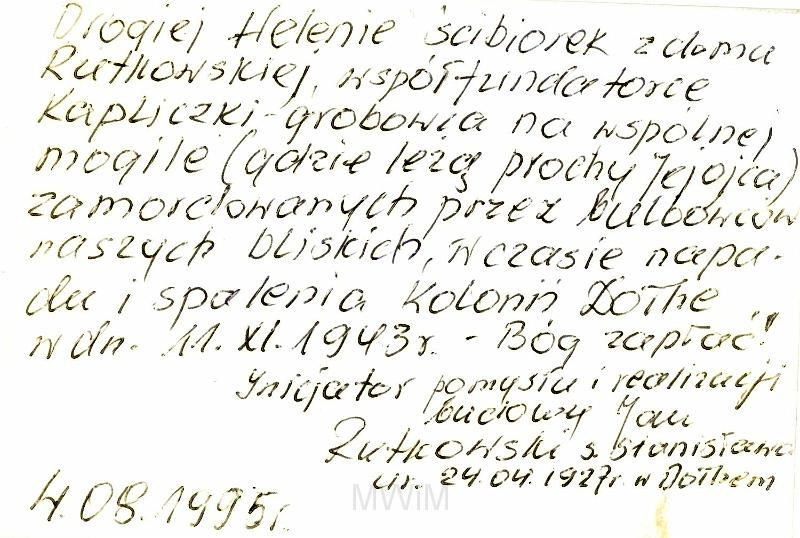 Drogiej Helenie Ścibiorek z doma
Rutkowskiej, współfundatorce
Kapliczki-grobowca na wspólnej
mogile (gdzie leżą prochy Jej ojca)
zamordowanych przez bulbowców
naszych bliskich, w czasie napa-
du i spalenia Kolonii Dothe
w dn. 11. XI. 1943r. - Bóg zapłać!"
Inicjator pomysłu i realizacji
budowy Jan
Rutkowski s. Stanisława
ur. 24.04.1927r. w Dothem
4.08.1995r.
MWiM